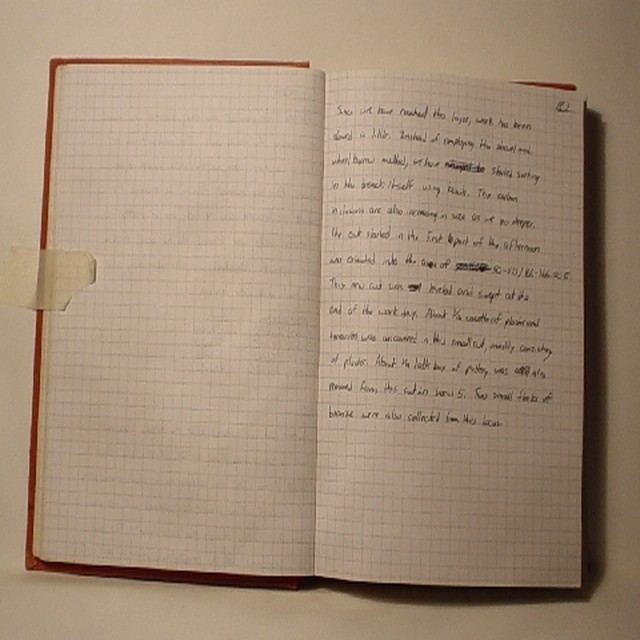 Since we have reached this layer, work has been
slowed a little. Instead of employing the shovel and
wheel barrow method, we have started sorting
in the trench itself using
inclusions are also increasing in size as we go deeper.
The cut started in the first part of the afternoon
was oriented into the area of
This new cut was leveled and swept at the
end of the work day. About
was uncovered in this small cut, mostly consisting
of plaster. About box of pottery was also
removed from this cut in locus 5. Two small flecks of
bronze were also collected from this locus.